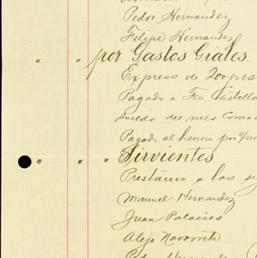 Pedro Hernandez
Felipe Hernandez
" " por Gastos Grales.
Express de 200 pes
Pagado a Fco Castella
Sueldo del mes
Pagado al
" " Sirvientes
Prestamo a los si
Manuel Hernandez
Juan Palacios
Alejo Navarrete